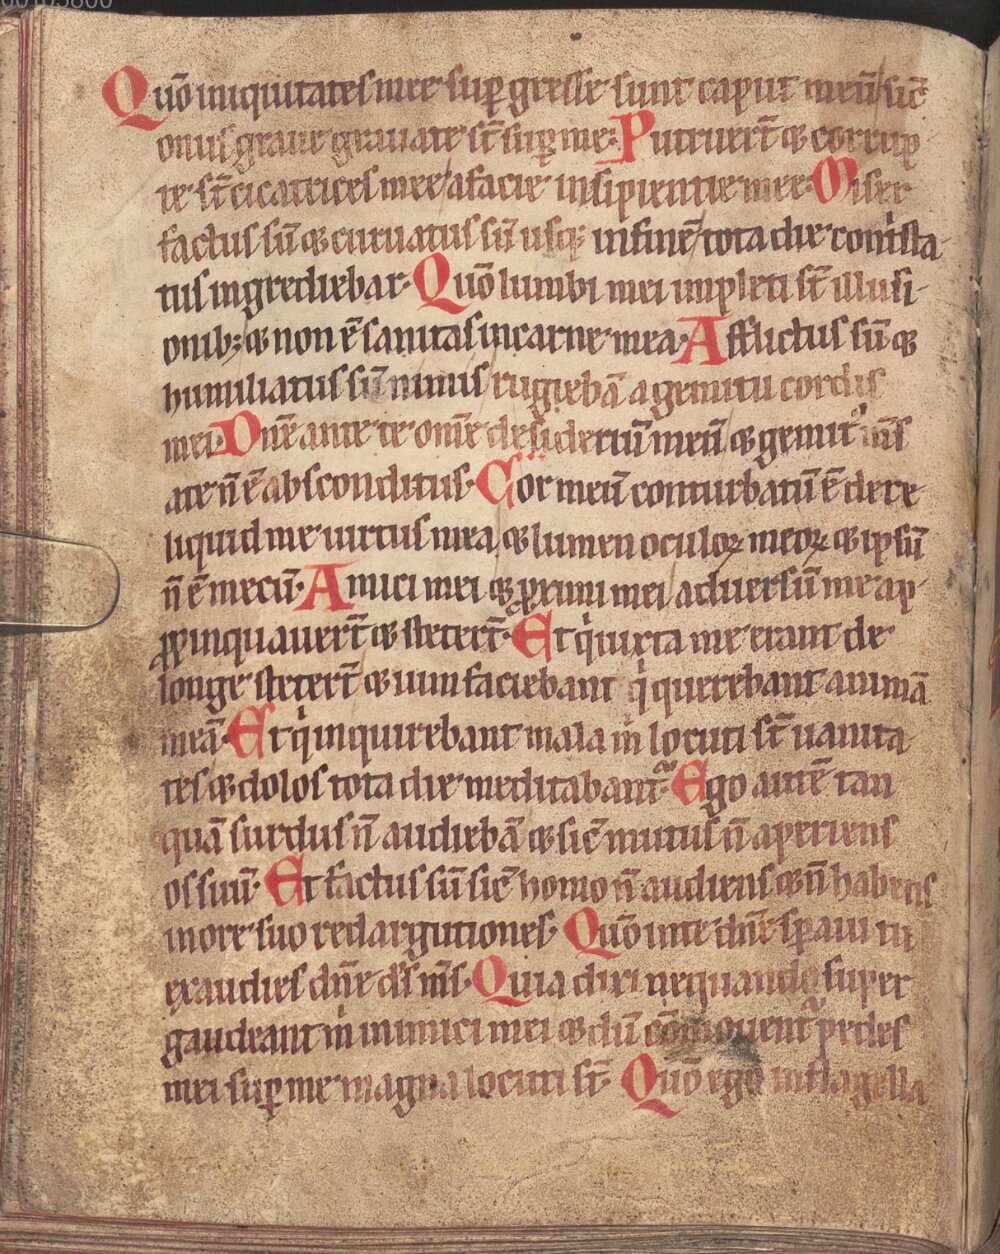 Quō iniquitates mee sup̄ gresse sunt caput meū sic̄
onus graue grauate st̄ sup̄ me· Putruert̄ ⁊ corrup
te st̄ cicatrices mee a facie insipientie mee· Miser
factus sū ⁊ curuatus sū usq; in finē tota die contrista
tus ingrediebar· Quō lumbi mei impleti st̄ illusi
onib; ⁊ non ē sanitas in carne mea· Afflictus sū ⁊
humiliatus sū nimis rugiebā a gemitu cordis
mei· Dn̄e ante te om̄e desideriū meū ⁊ gemitꝰ m̄s
a te n̄ ē absconditus· Cor meū conturbatū ē dere
liquid me uirtus mea ⁊ lumen oculoꝝ meoꝝ ⁊ ipsū
n̄ ē mecū· Amici mei ⁊ ꝓximi mei aduersū me ap
ꝓpinquauert̄ ⁊ stetert̄· Et qͥ iuxta me erant de
longe stetert̄ ⁊ uim faciebant qͥ querebant animā
meā· Et qͥ inquirebant mala mͥ locuti st̄ uanita
tes ⁊ dolos tota die meditabant᷑· Ego autē tan
quā surdus n̄ audiebā ⁊ sic̄ mutus n̄ aperiens
os suū· Et factus sū sic̄ homo n̄ audiens ⁊ n̄ habens
in ore suo redargutiones· Quō in te dn̄e sp̄aui tu
exaudies dn̄e ds̄ m̄s· Quia dixi nequando super
gaudeant mͥ inimici mei ⁊ dū cōmouent᷑ pedes
mei sup̄ me magna locuti st̄· Quō ego in flagella